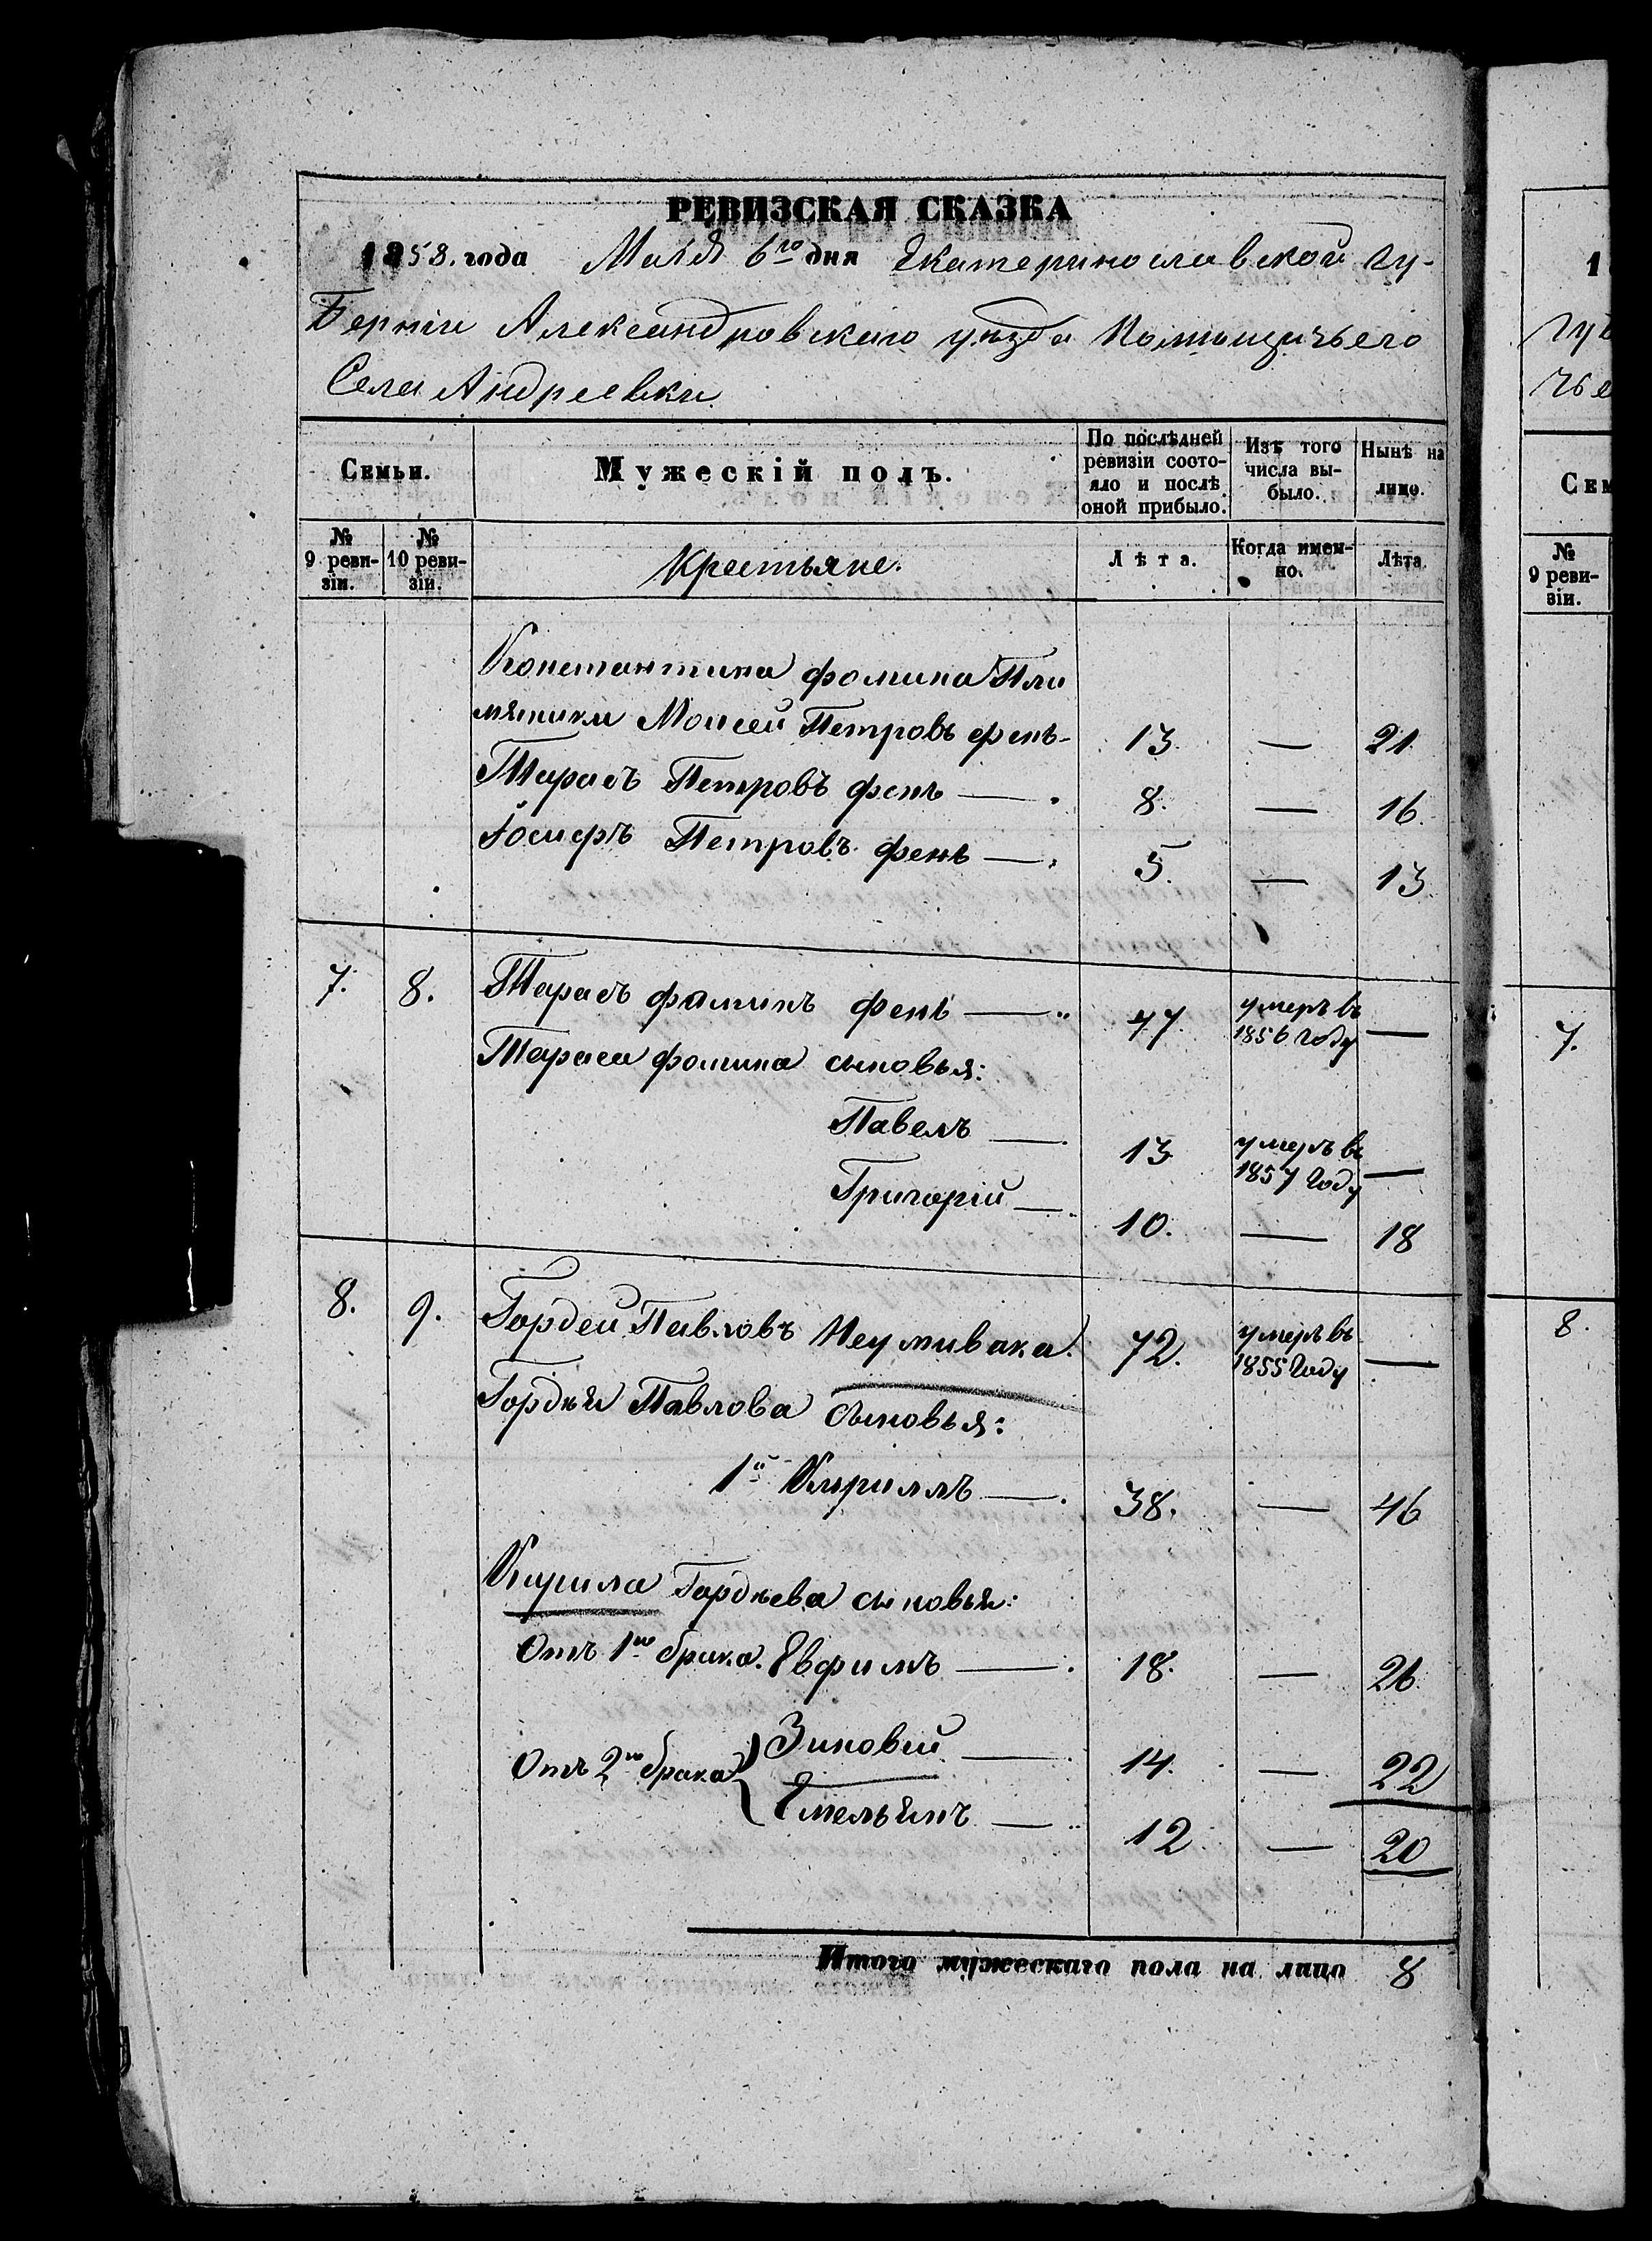 РЕВИЗСКАЯ СКАЗКА
1858. года Маія 6го дня Екатеринославской гу-
берніи Александровскаго уѣзда Помѣщичьего
Села Андреевки.
Семьи.
Мужескій полъ.
По послѣдней ревизіи состояло и послѣ оной прибыло.
Изъ того числа выбыло.
Нынѣ на лицо.
№ 9 ревизіи.
№ 10 ревизіи.
Крестьяне.
Лѣта.
Когда именно.
Лѣта.
Константина Фомина Пле
мяники Моисей Петровъ Фень- 13. — 21.
Тарасъ Петровъ Фень — 8. — 16.
Іосифъ Петровъ Фень — 5. — 13
7. 8. Тарасъ Фоминъ Фень — 47. умеръ въ 1856 году —
Тараса Фомина сыновья:
Павелъ — 13 умеръ въ 1857 году —
Григорій — 10. — 18
8. 9. Гордей Павловъ Неумивака. 72. умеръ въ 1855 году —
Гордѣя Павлова сыновья:
1й Кирилъ — 38. — 46
Кирила Гордѣева сыновья:
Отъ 1го брака. Евфимъ — 18. — 26
Отъ 2го брака Зиновій — 14. — 22
Емельянъ — 12 — 20
Итого мужескаго пола на лицо 8
1
губ
чье
Сем
№ 9 ревизіи.
7.
8.